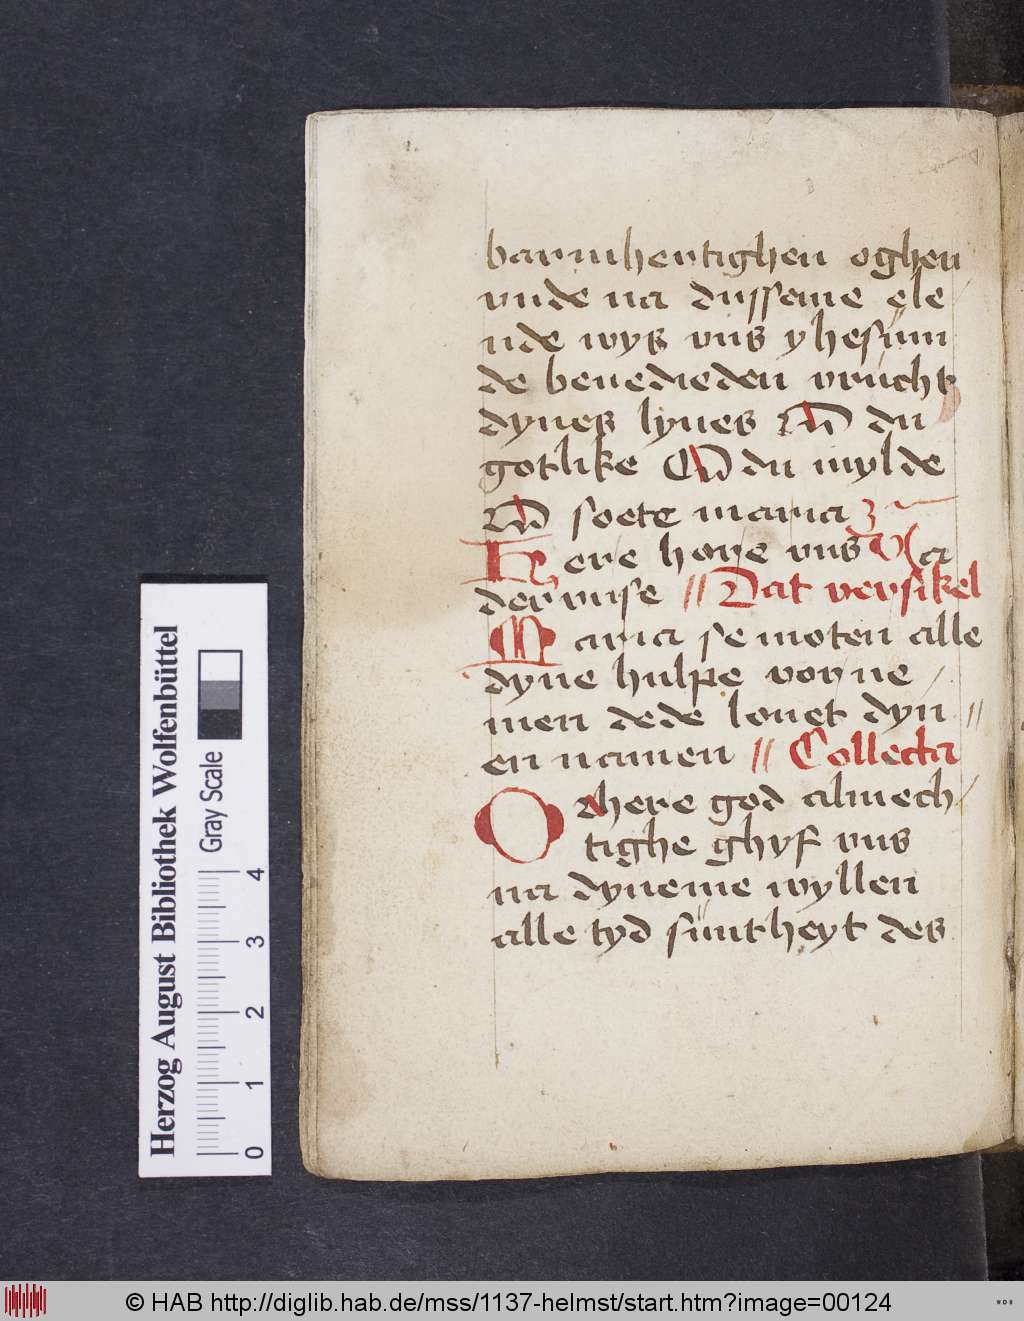 barmhertighen oghen
vnde na dusseme ele
nde wys vns yhesum
de benedieden vrucht
dynes lyues O du
gotlike O du mylde
O sote maria
Here hore vns V Va
der vnse // Dat versikel
Maria se moten alle
dyne hulpe vorne
men dede louet dyn //
en namen // Collecta
O here god almech
tighe ghyf vns
na dyneme wyllen
alle tyd suntheyt des
Herzog August Bibliothek Wolfenbüttel
Gray Scale
0 1 2 3 4
© HAB http://diglib.hab.de/mss/1137-helmst/start.htm?image=00124